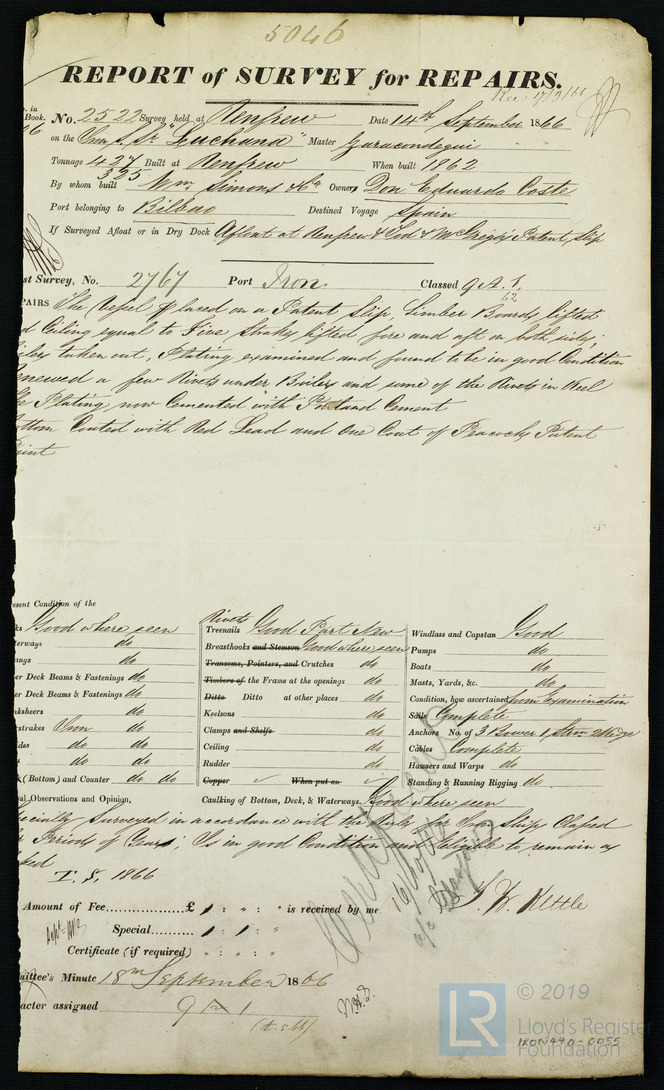 5046
REPORT of SURVEY for REPAIRS.
Rec 17/9/66
No. 2522 Survey held at Renfrew Date 14th September 1866
on the Iron S. Sr "Luchana" Master
Tonnage 427 Built at Renfrew When built 1862
325
By whom built Wm. Simons & Co Owner Don Eduardo Coste
Port belonging to Bilbao Destined Voyage Spain
If Surveyed Afloat or in Dry Dock Afloat at Renfrew & Tod & McGregors Patent Slip
st Survey, No. 2767 Port Iron. Classed 9 A. 1.
62
PAIRS The Vessel placed on a Patent Slip, Limber Boards, lifted
d Ceiling equal to Five Strakes lifted fore and aft on both sides;
ilers taken out, Plating examined and found to be in good Condition
enewed a few Rivets under Boilers and some of the Rivets in Keel
Plating, now Cemented with Portland Cement
ttom Coated with Red Lead and One Coat of Peacocks Patent
aint
esent Condition of the
ks Good where seen
erways do
angs do
er Deck Beams & Fastenings do
er Deck Beams & Fastenings do
nksheers do
rstrakes Iron do
des do do
do do
k (Bottom) and Counter do do
Rivets
Treenails Good Part New
Breasthooks and Stemson Good where seen
Transoms, Pointers, and Crutches do
Timbers of the Frame at the openings do
Ditto Ditto at other places do
Keelsons do
Clamps and Shelfs do
Ceiling do
Rudder do
Copper ✓ When put on ✓
Windlass and Capstan Good
Pumps do
Boats do
Masts, Yards, &c. do
Condition, how ascertained from Examination
Sails Complete
Anchors No. of 3 Bower 1 Stream 2 Kedge
Cables Complete
Hawsers and Warps do
Standing & Running Rigging do
al Observations and Opinion, Caulking of Bottom, Deck, & Waterways, Good where seen
ecially Surveyed in accordance with the Rule for Iron Ships Classed
r Periods of Years; Is in good Condition and Eligible to remain as
sed
T. S. 1866
J. W. Kettle
Amount of Fee..................£ 1 : " : " is received by me
Special......... 1 : 1 : "
Certificate (if required) " : " : "
mittee's Minute 18th September 1866
acter assigned 9 A 1
(t.s 66)
LR
© 2019
Lloyd's Register
Foundation
IRON440-0055